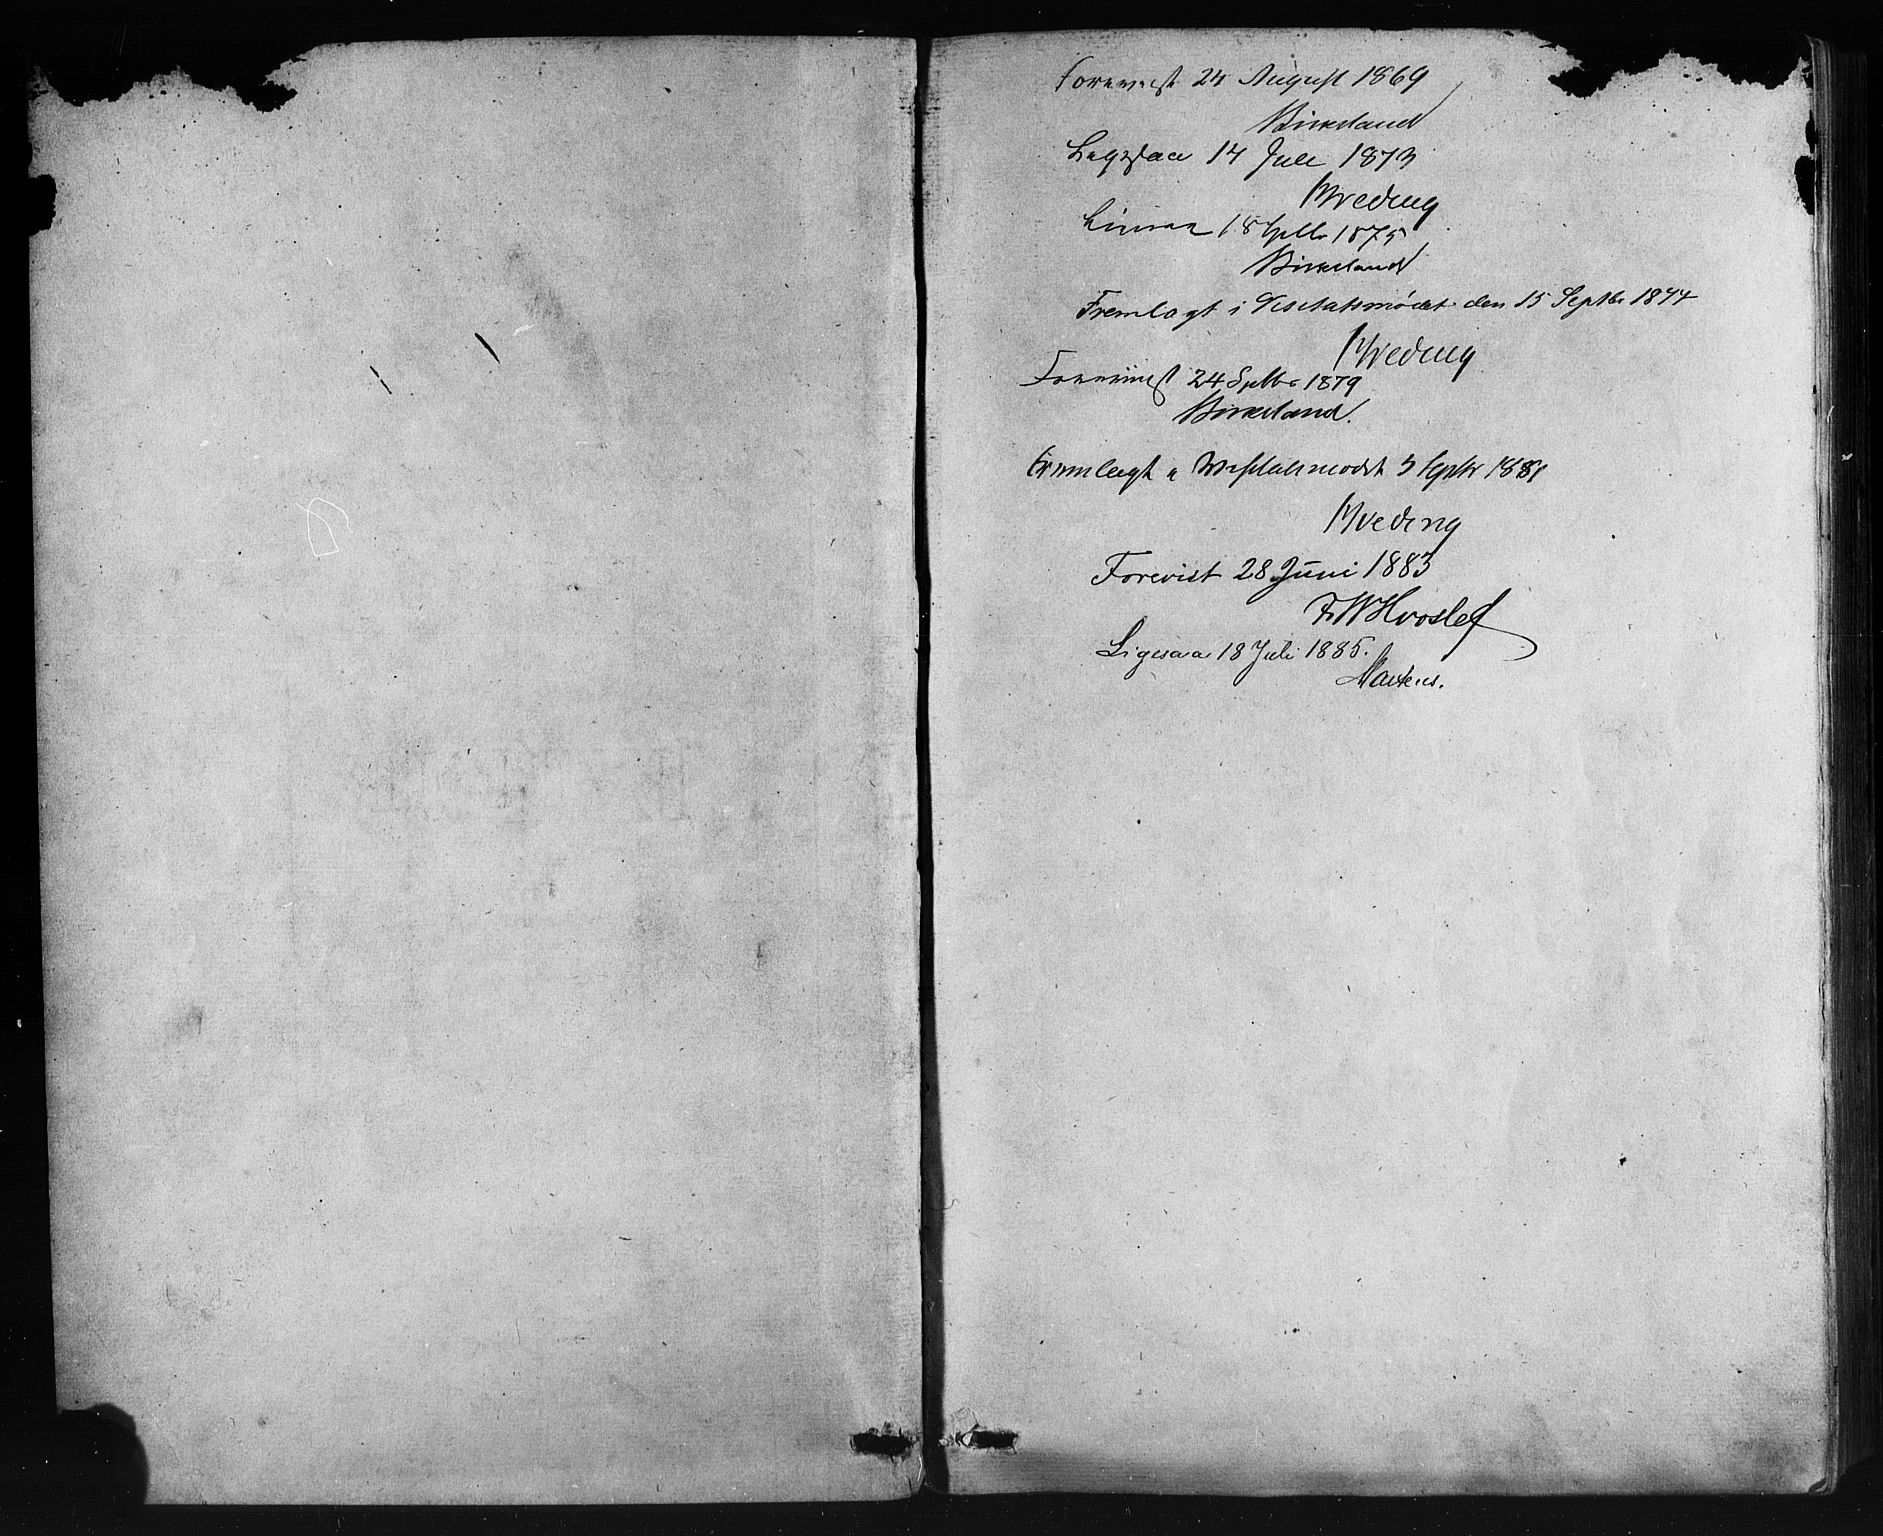 Forevist 24 August 1869
Birkeland
Ligesaa 14 Juli 1873
Hveding
Ligesaa 18 Septbr 1875
Birkeland
Fremlagt i Visitatsmødet den 15 Septbr 1877
Hveding
Forevist 24 Septbr 1879
Birkeland.
Fremlagt i Visitatsmødet 5 Septbr 1881
Hveding
Forevist 28 Juni 1883
F W Hvoslef
Ligesaa 18 Juli 1885.
Martens.